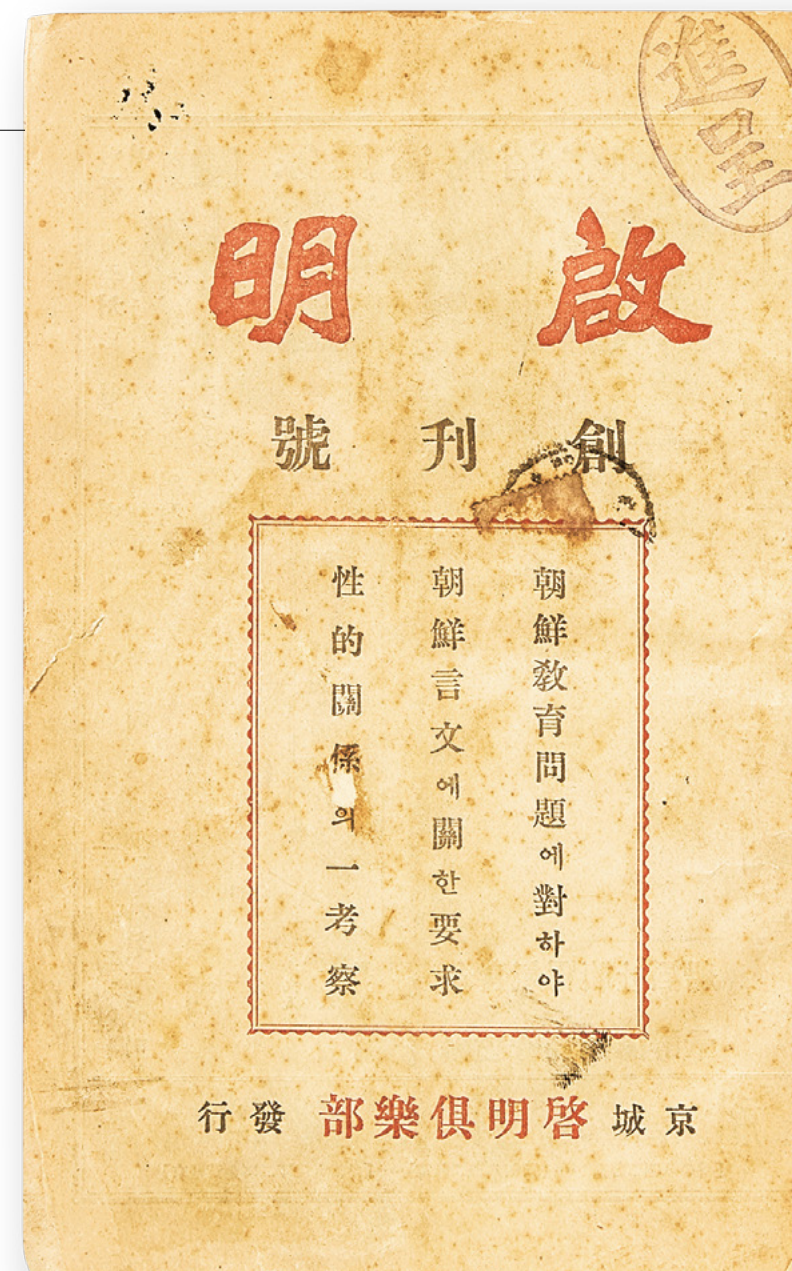 進呈
啟明
創刊號
朝鮮敎育問題에對하야
朝鮮言文에關한要求
性的關係의一考察
京城 啓明俱樂部 發行